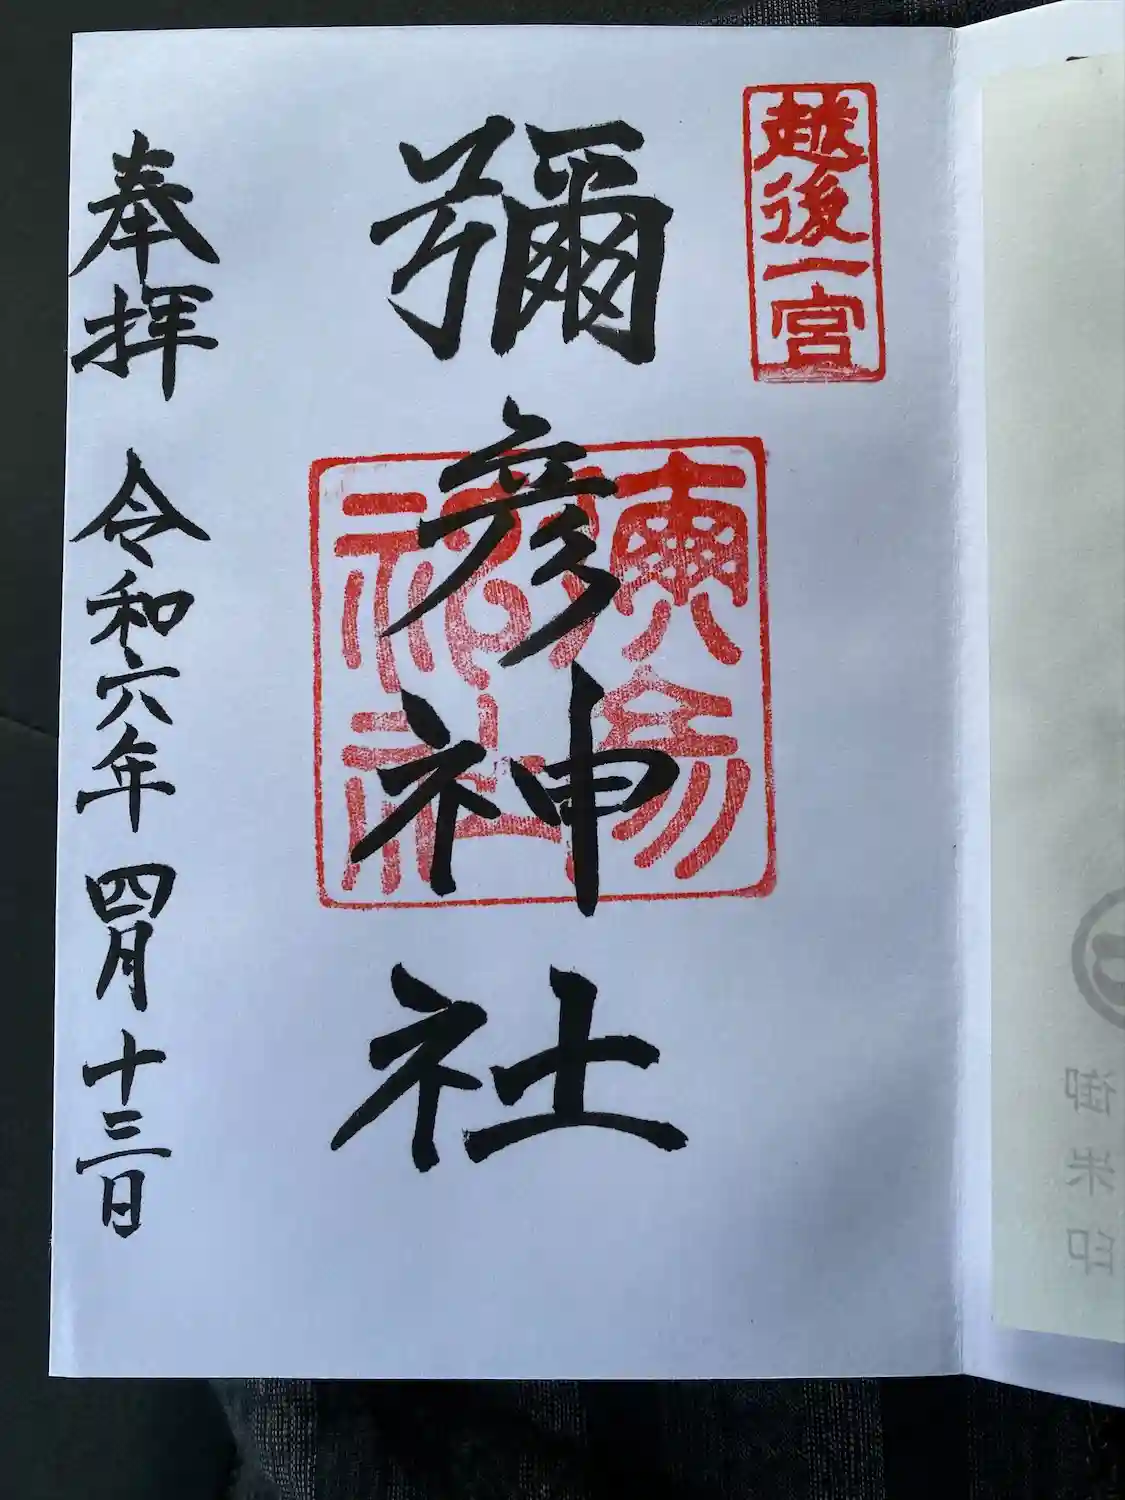 越後一宮
彌彦神社
奉拝 令和六年 四月 十三日
御朱印